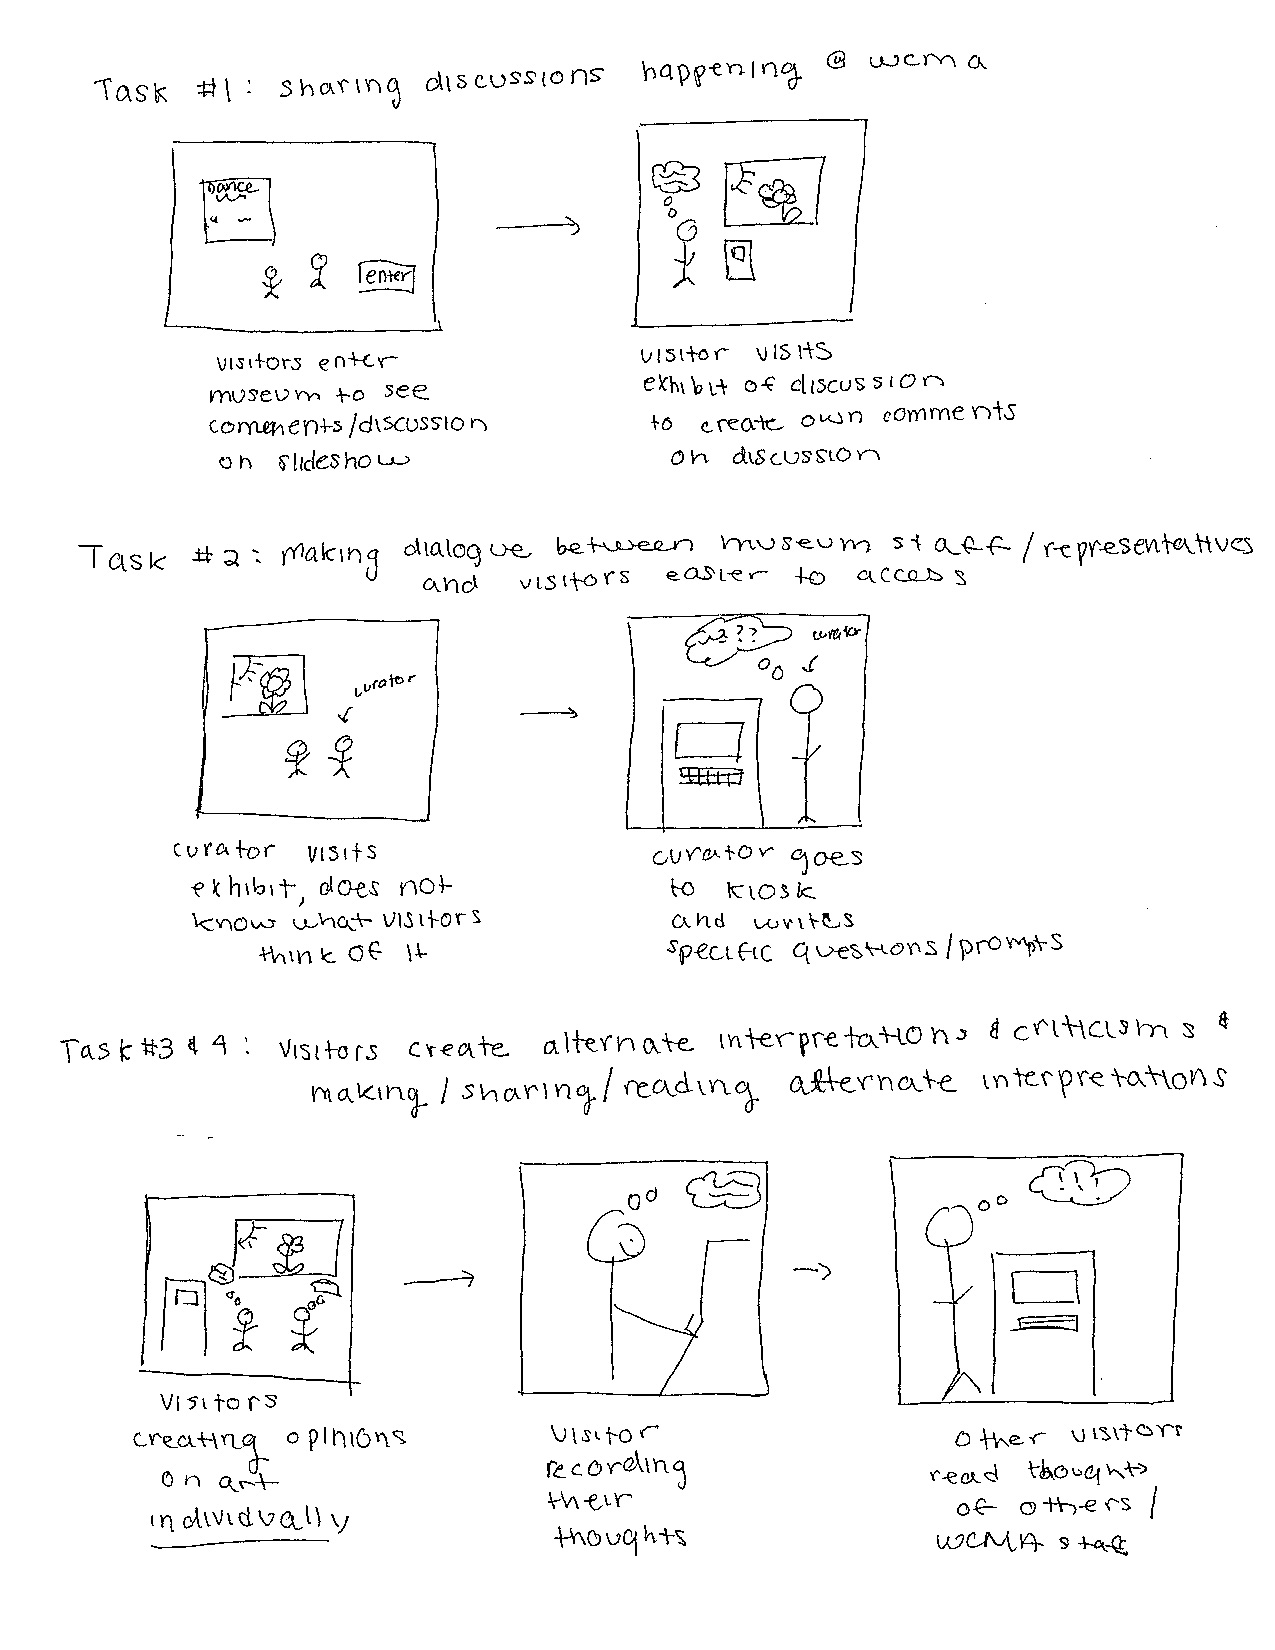 Task #1: sharing discussions happening @ wcma
Dance
enter
visitors enter
museum to see
comments/discussion
on slideshow
visitor visits
exhibit of discussion
to create own comments
on discussion
Task #2: Making dialogue between museum staff/representatives
and visitors easier to access
curator
curator
???
curator visits
exhibit, does not
know what visitors
think of it
curator goes
to kiosk
and writes
specific questions/prompts
Task #3 & 4: Visitors create alternate interpretations & criticisms &
making/sharing/reading alternate interpretations
!!!
Visitors
creating opinions
on art
individually
Visitor
recording
their
thoughts
Other visitors
read thoughts
of others/
WCMA staff